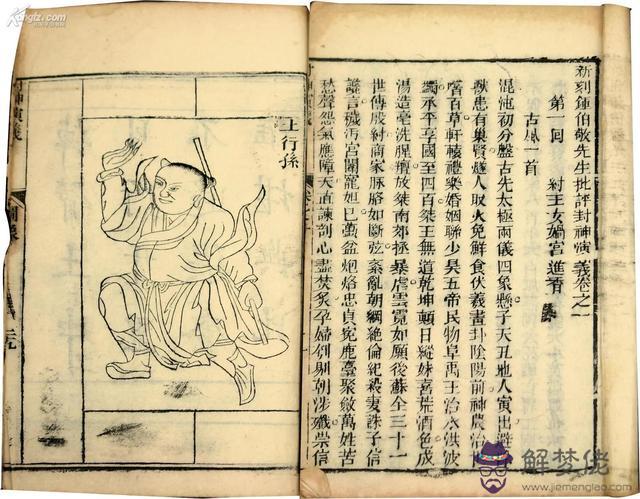 新刻鍾伯敬先生批評封神演義卷之一
第一回 紂王女媧宮進香
古風一首
混沌初分盤古先太極兩儀四象懸子天丑地人寅出避
獸患有巢賢燧人取火免鮮食伏羲畫卦陰陽前神農治
嘗百草軒轅禮樂婚姻聯少昊五帝民物阜禹王治水洪波
蠲承平享國至四百桀王無道乾坤顛日縱妹喜荒酒色成
湯造亳洗腥羶放桀南郊拯暴虐雲霓如願後蘇全三十一
世傳成紂商家脉胳如斷弦紊亂朝綱絕倫紀殺妻誅子信
讒言穢汚宮闈寵妲己蠆盆炮烙忠貞寃鹿臺聚斂萬姓苦
愁聲怨氣應障天直諫剖心盡焚炙孕婦刳剔朝涉殲崇信
土行孫
神演義
Kongfz.com
解梦佬
www.jiemenglao.com